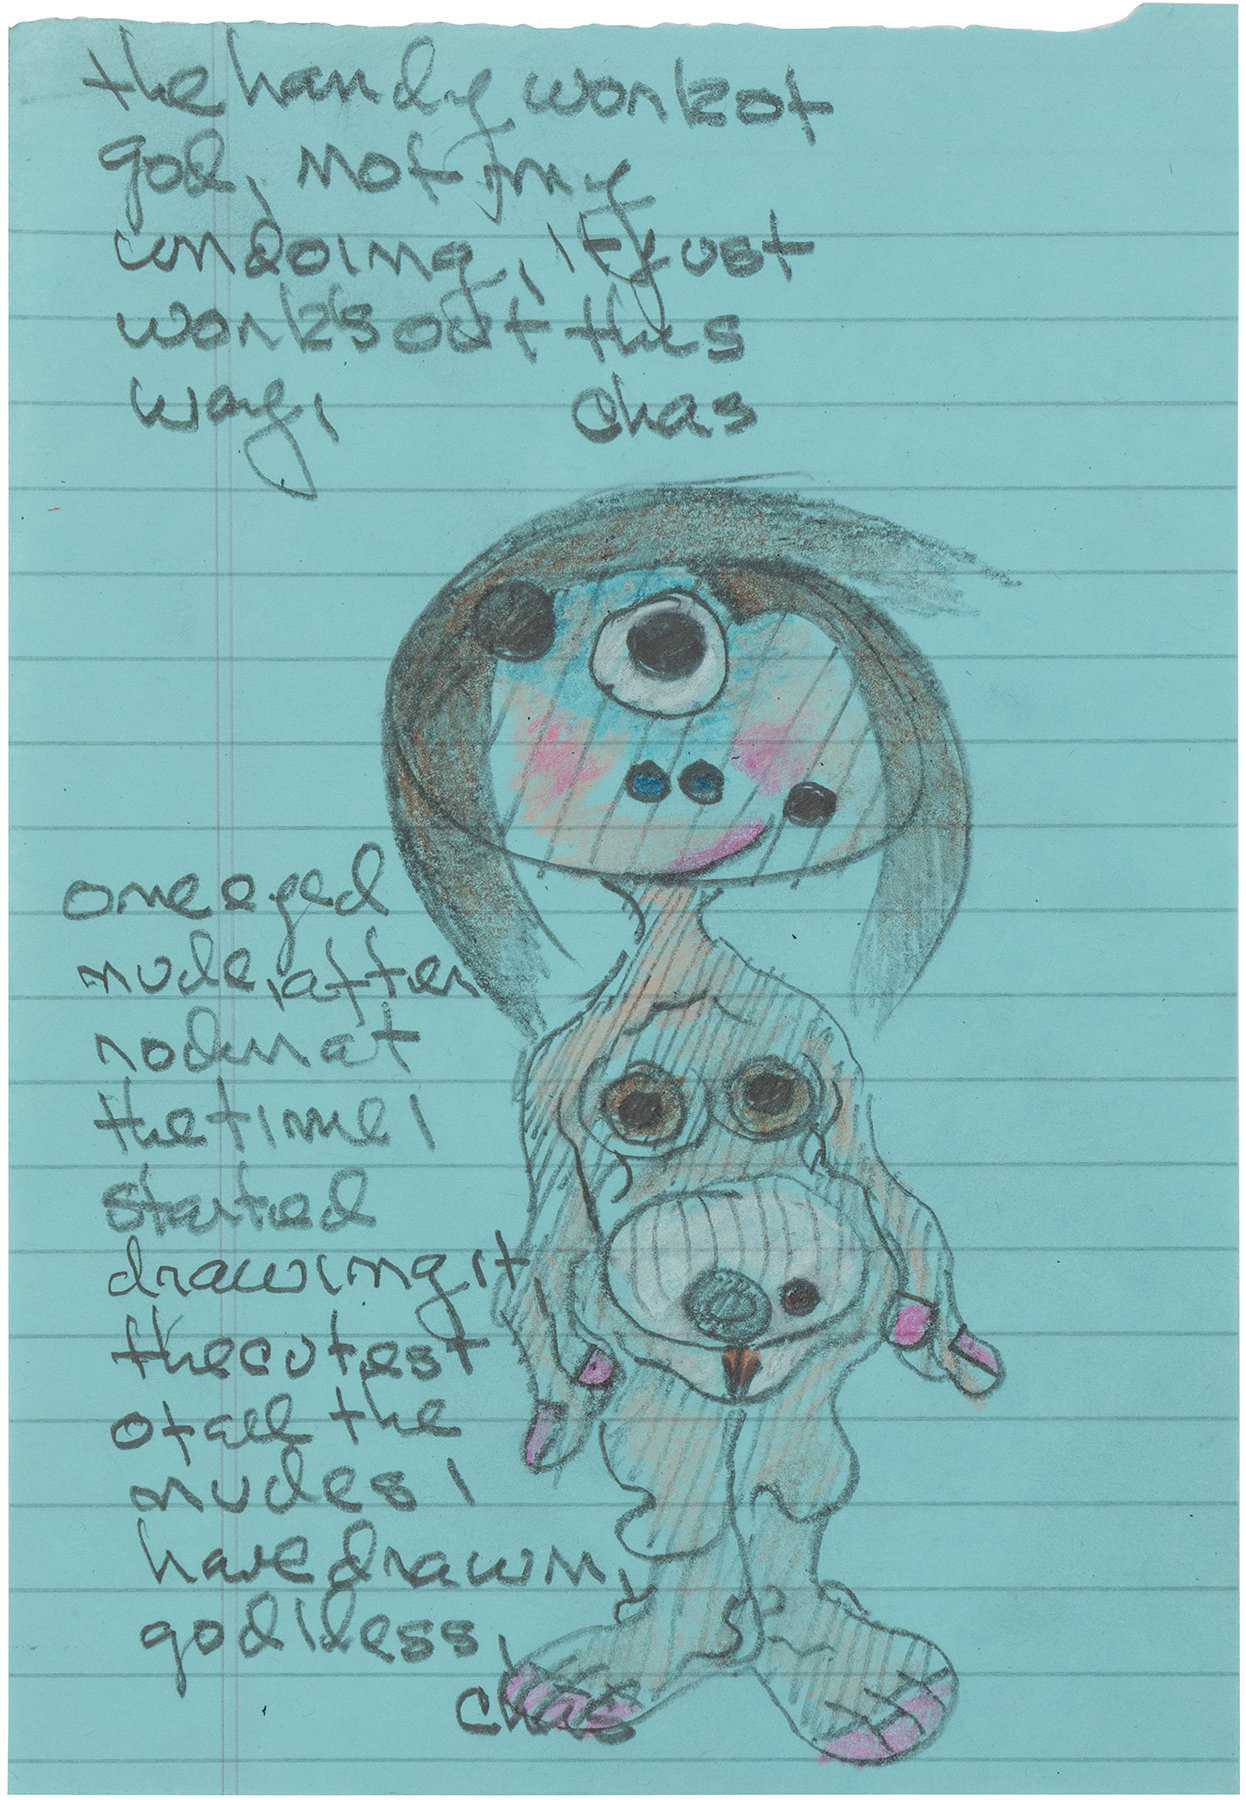 the handy work of
god, not my
undoing, it just
works out this
way, chas
one eyed
nude, after
rodin at
the time i
started
drawing it,
the cutest
of all the
nudes i
have drawn,
god bless,
chas